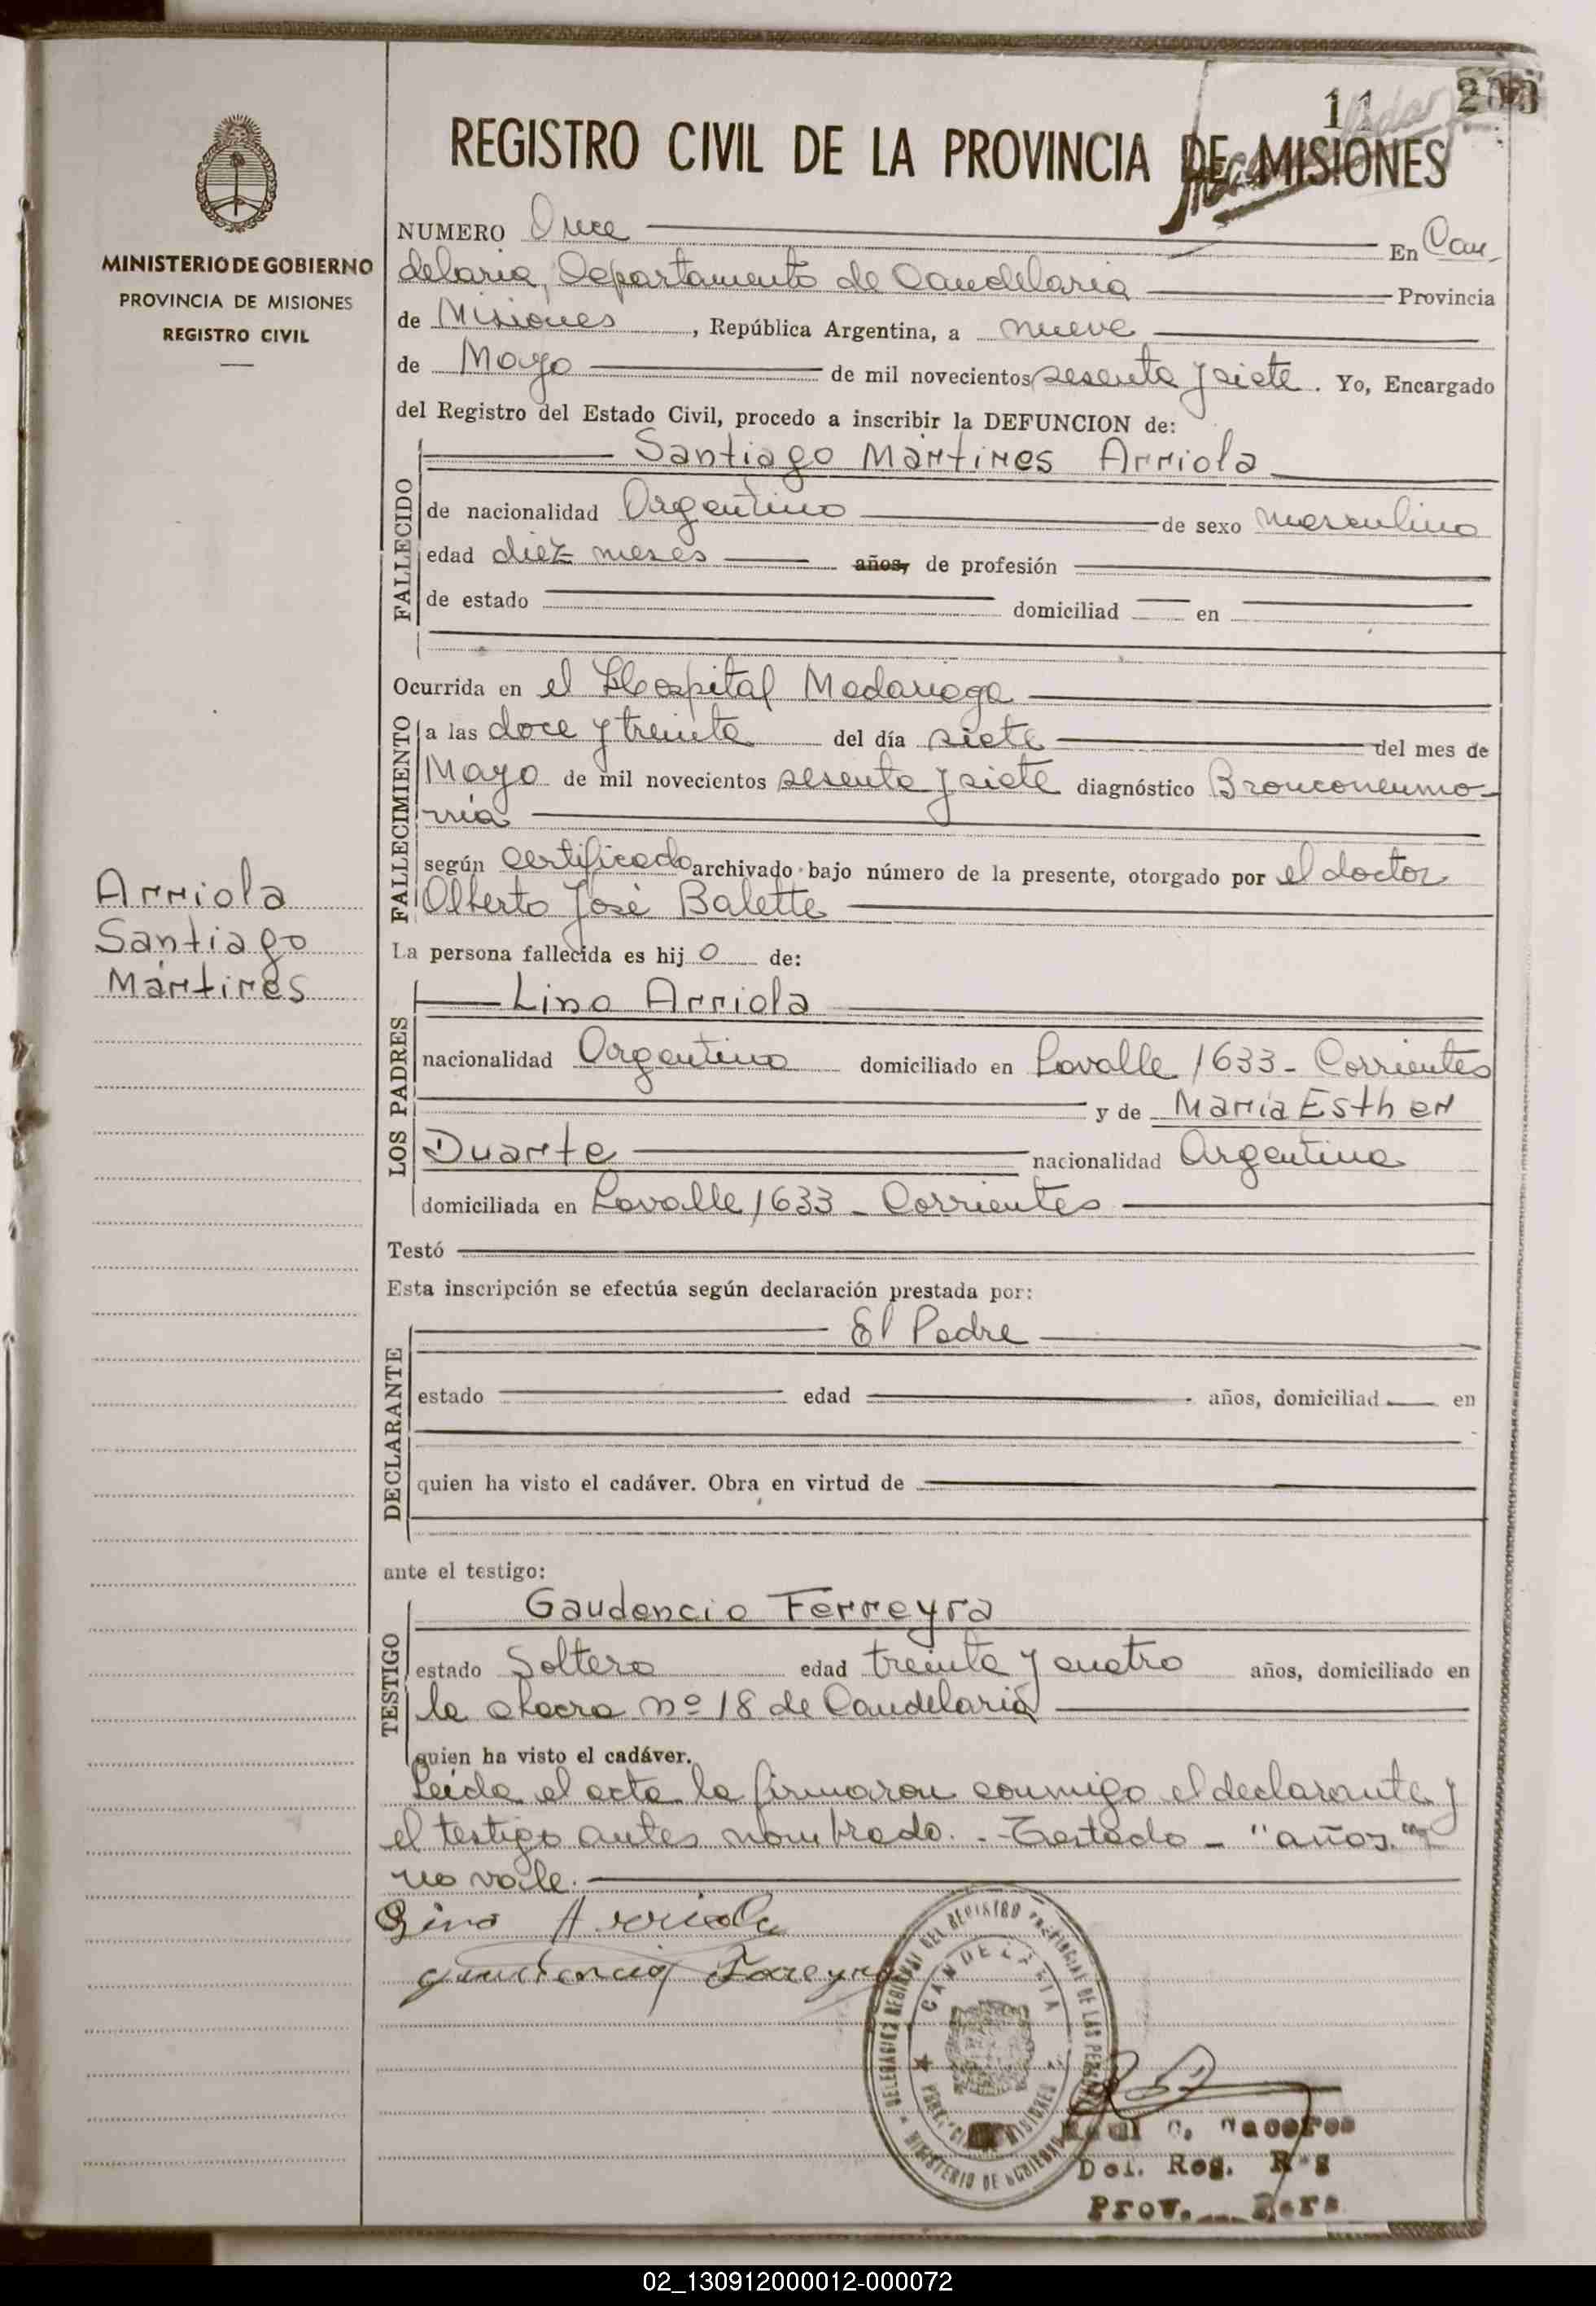 11
REGISTRO CIVIL DE LA PROVINCIA DE MISIONES
MINISTERIO DE GOBIERNO
PROVINCIA DE MISIONES
REGISTRO CIVIL
NUMERO Once En Can-
delaria, Departamento de Candelaria Provincia
de Misiones, República Argentina, a nueve
de Mayo de mil novecientos sesenta y siete. Yo, Encargado
del Registro del Estado Civil, procedo a inscribir la DEFUNCION de:
Santiago Mártires Arriola
FALLECIDO
de nacionalidad Argentino de sexo masculino
edad diez meses años, de profesión
de estado domiciliad en
Ocurrida en el Hospital Madariaga
FALLECIMIENTO
a las doce y treinta del día siete del mes de
Mayo de mil novecientos sesenta y siete diagnóstico Bronconeumo-
nía
según certificado archivado bajo número de la presente, otorgado por el doctor
Alberto José Balette
Arriola
Santiago
Mártires
La persona fallecida es hijo de:
LOS PADRES
Lino Arriola
nacionalidad Argentino domiciliado en Lavalle 1633 - Corrientes
y de María Esther
Duarte nacionalidad Argentina
domiciliada en Lavalle 1633 - Corrientes
Testó
Esta inscripción se efectúa según declaración prestada por:
DECLARANTE
El Padre
estado edad años, domiciliad en
quien ha visto el cadáver. Obra en virtud de
ante el testigo:
TESTIGO
Gaudencio Ferreyra
estado Soltero edad treinta y cuatro años, domiciliado en
la chacra nº 18 de Candelaria
quien ha visto el cadáver.
Leída el acta la firmaron conmigo el declarante y
el testigo antes nombrado. - Testado - "años"
no vale.
Lino Arriola
Gaudencio Ferreyra
DEL REGISTRO PROVINCIAL DE LAS
CANDELARIA
MISIONES
MINISTERIO DE GOBIERNO
Del. Reg.
Prov. Pers
02_130912000012-000072